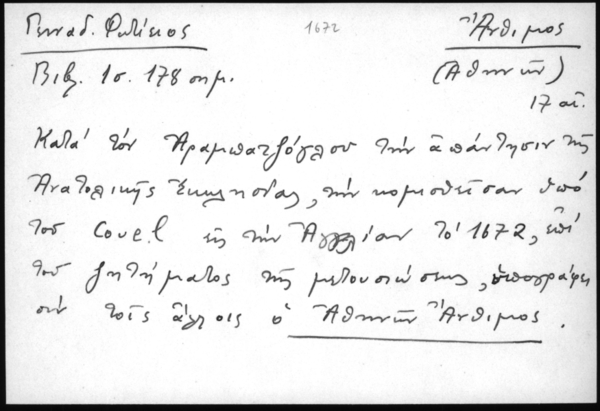 Γενναδ. Φωτίειος 1672 Ἄνθιμος
Βιβλ. 1σ. 178 σημ. (Ἀθηνῶν)
17 αἰ.
Κατά τόν Ἀραμπατζόγλου τήν ἀπάντησιν τῆς
Ἀνατολικῆς Ἐκκλησίας, τήν κομισθεῖσαν ὑπό
τοῦ Covel εἰς τήν Ἀγγλίαν τό 1672, ἐπί
τοῦ ζητήματος τῆς μετουσιώσεως, ὑπογράφει
σύν τοῖς ἄλλοις ὁ Ἀθηνῶν Ἄνθιμος.